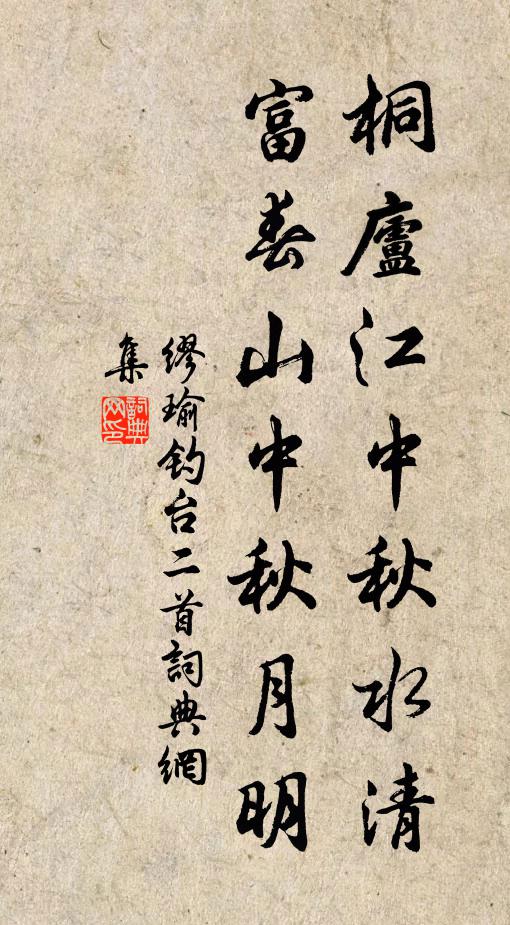 桐廬江中秋水清
富春山中秋月明
繆瑜钓台二首詞典網
集
詞典網印